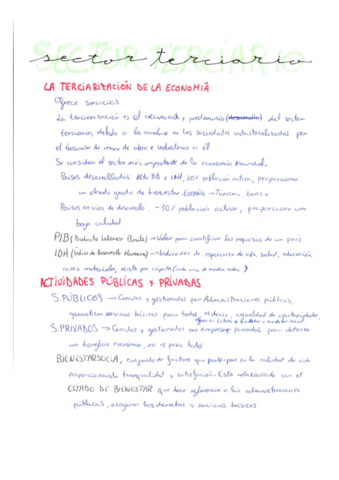 SECTOR TERCIARIO
sector terciario
LA TERCIARIZACIÓN DE LA ECONOMÍA
Ofrece servicios
La terciarización es el crecimiento y predominio (desarrollo) del sector
terciario, debido a los cambios en las sociedades industrializadas por
el trasvase de mano de obra e industrias a él
Se considera el sector más importante de la economía mundial.
Países desarrollados Alto PIB e IDH, 60% población activa, proporcionan
un elevado grado de bienestar. España → Turismo, banca
Países en vías de desarrollo: - 50% población activa, proporcionan una
baja calidad
PIB (Producto Interior Bruto) → Valor para cuantificar las riquezas de un país
IDH (Índice de Desarrollo Humano) → Indicador de esperanza de vida, salud, educación,
ACTIVIDADES PÚBLICAS Y PRIVADAS
S. PÚBLICOS → Creados y gestionados por Administraciones públicas,
garantizan servicios básicos para todos es decir, igualdad de oportunidades
S. PRIVADOS → Creados y gestionados por empresas privadas para obtener
un beneficio económico, no es para todos
BIENESTAR SOCIAL, conjunto de factores que participan en la calidad de vida
proporcionando tranquilidad y satisfacción. Esta relacionado con el
ESTADO DE BIENESTAR que hace referencia a las administraciones
públicas, asegurar los derechos y servicios básicos